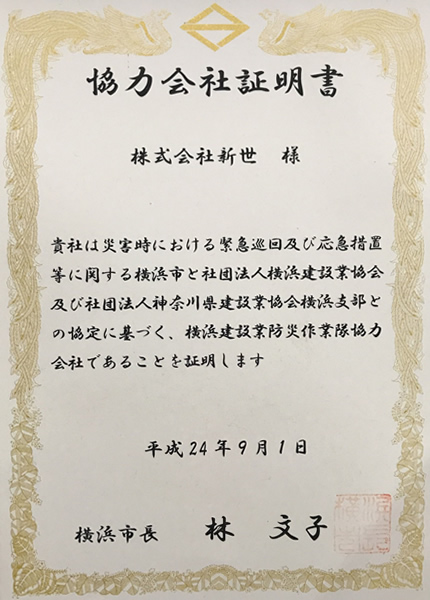 協力会社証明書
株式会社新世 様
貴社は災害時における緊急巡回及び応急措置
等に関する横浜市と社団法人横浜建設業協会
及び社団法人神奈川県建設業協会横浜支部と
の協定に基づく、横浜建設業防災作業隊協力
会社であることを証明します
平成24年9月1日
横浜市長 林 文子